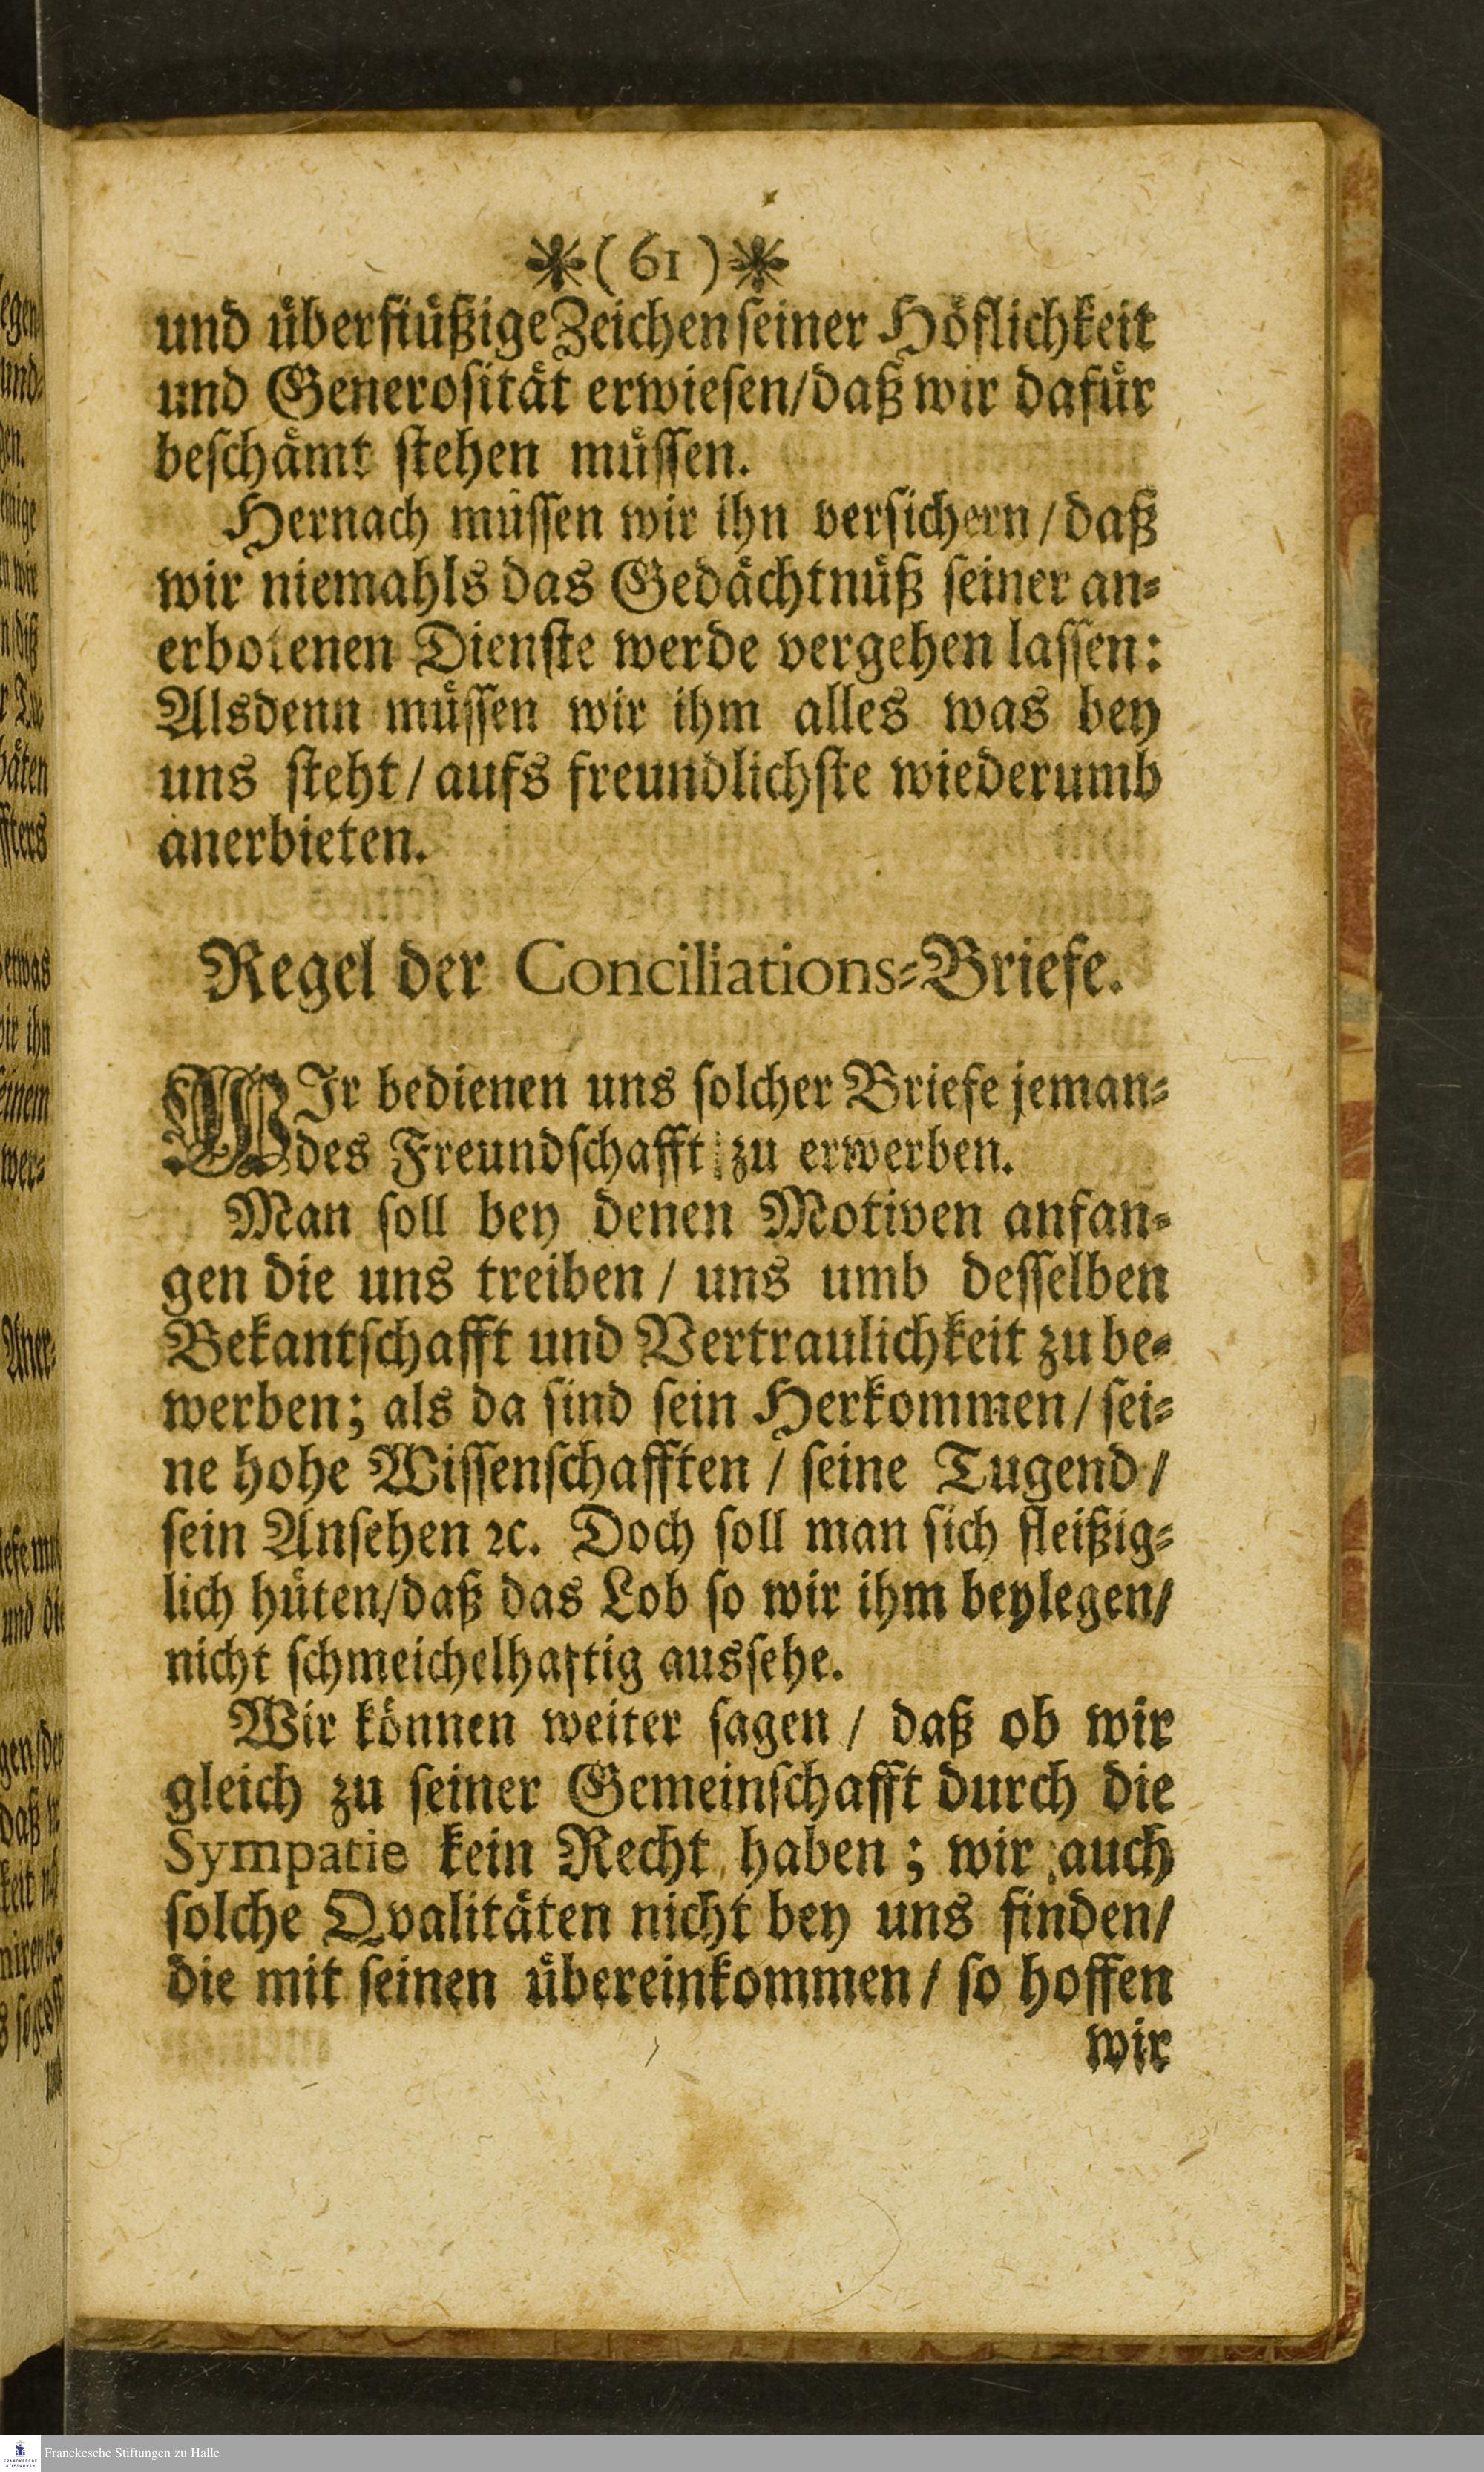 *( 61 )*
und überfiüßige Zeichen seiner Höflichkeit
und Generosität erwiesen/daß wir dafür
beschämt stehen müssen.
Hernach müssen wir ihn versichern/daß
wir niemahls das Gedächtnüß seiner an-
erbotenen Dienste werde vergehen lassen:
Alsdenn müssen wir ihm alles was bey
uns steht/aufs freundlichste wiederumb
anerbieten.
Regel der Conciliations-Briefe.
WIr bedienen uns solcher Briefe jeman-
des Freundschafft zu erwerben.
Man soll bey denen Motiven anfan-
gen die uns treiben / uns umb desselben
Bekantschafft und Vertraulichkeit zu be-
werben; als da sind sein Herkommen/sei-
ne hohe Wissenschafften / seine Tugend/
sein Ansehen ꝛc. Doch soll man sich fleißig-
lich hüten/daß das Lob so wir ihm beylegen/
nicht schmeichelhaftig aussehe.
Wir können weiter sagen / daß ob wir
gleich zu seiner Gemeinschafft durch die
Sympatie kein Recht haben; wir auch
solche Qvalitäten nicht bey uns finden/
die mit seinen übereinkommen/ so hoffen
wir
Franckesche Stiftungen zu Halle